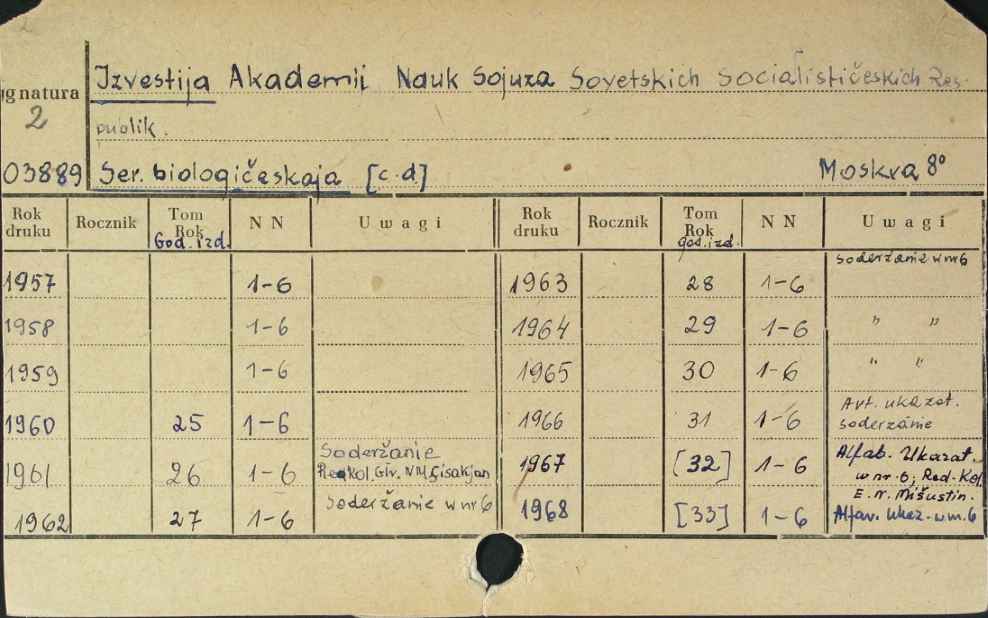 Izvestija Akademij Nauk Sojuza Sovetskich Socialističeskich Res-
ygnatura
2
publik.
03889 Ser. biologičeskaja [c.d] Moskva 8°
Rok druku Rocznik Tom Rok God. izd. N N Uwagi Rok druku Rocznik Tom Rok god. izd. N N Uwagi
1957 1-6 1963 28 1-6 soderžanie w nr 6
1958 1-6 1964 29 1-6 " "
1959 1-6 1965 30 1-6 " "
1960 25 1-6 1966 31 1-6 Avt. ukazat. soderžanie
1961 26 1-6 Soderžanie Red Kol. Glv. N.M. Sisakjan 1967 [32] 1-6 Alfab. Ukazat. w nr 6; Red. Kol. E. N. Mišustin.
1962 27 1-6 Soderžanie w nr 6 1968 [33] 1-6 Alfav. Ukaz. w nr. 6